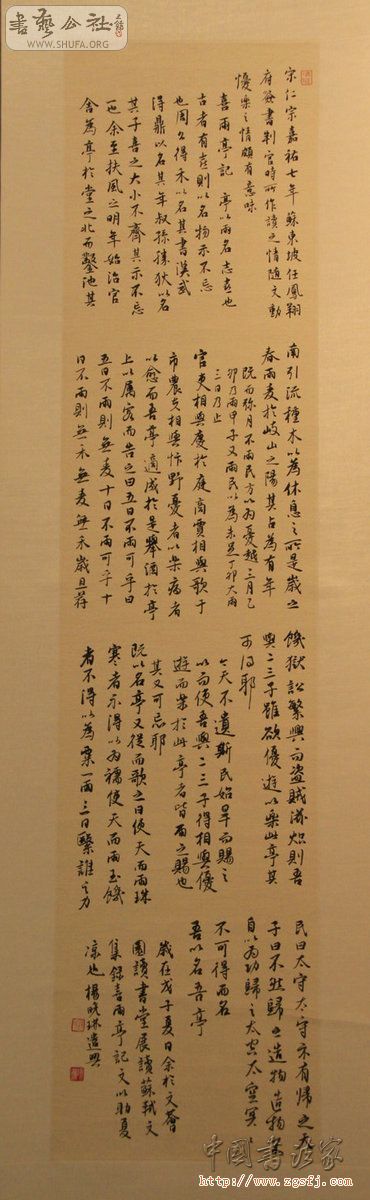 書藝公社
WWW.SHUFA.ORG
宋仁宗嘉祐七年蘇東坡任鳳翔
府簽書判官時所作讀之情隨文動
憂樂之情頗有意味
喜雨亭記 亭以雨名志喜也
古者有喜則以名物示不忘
也周公得禾以名其書漢武
得鼎以名其年叔孫勝狄以名
其子喜之大小不齊其示不忘
一也余至扶風之明年始治官
舍為亭於堂之北而鑿池其
南引流種木以為休息之所是歲之
春雨麥於岐山之陽其占為有年
既而彌月不雨民方以為憂越三月乙
卯乃雨甲子又雨民以為未足丁卯大雨
三日乃止
官吏相與慶於庭商賈相與歌于
市農夫相與忭野憂者以樂病者
以愈而吾亭適成於是舉酒於亭
上以屬客而告之曰五日不雨可乎曰
五日不雨則無麥十日不雨可乎十
日不雨則無禾無麥無禾歲且荐
饑獄訟繁興而盜賊滋熾則吾
與二三子雖欲優遊以樂此亭其
可得耶
今天不遺斯民始旱而賜之
以雨使吾與二三子得相與優
遊而樂於此亭者皆雨之賜也
其又可忘耶
既以名亭又從而歌之曰使天而雨珠
寒者不得以為襦使天而雨玉饑
者不得以為粟一雨三日繄誰之力
民曰太守太守不有歸之天
子曰不然歸之造物造物不
自以為功歸之太空太空冥冥
不可得而名
吾以名吾亭
歲在戊子夏日余於文薈
園讀書堂展讀蘇軾文
集錄喜雨亭記文以助夏
涼也楊曉琳遣興
中國書法家
http://www.zgsfj.com